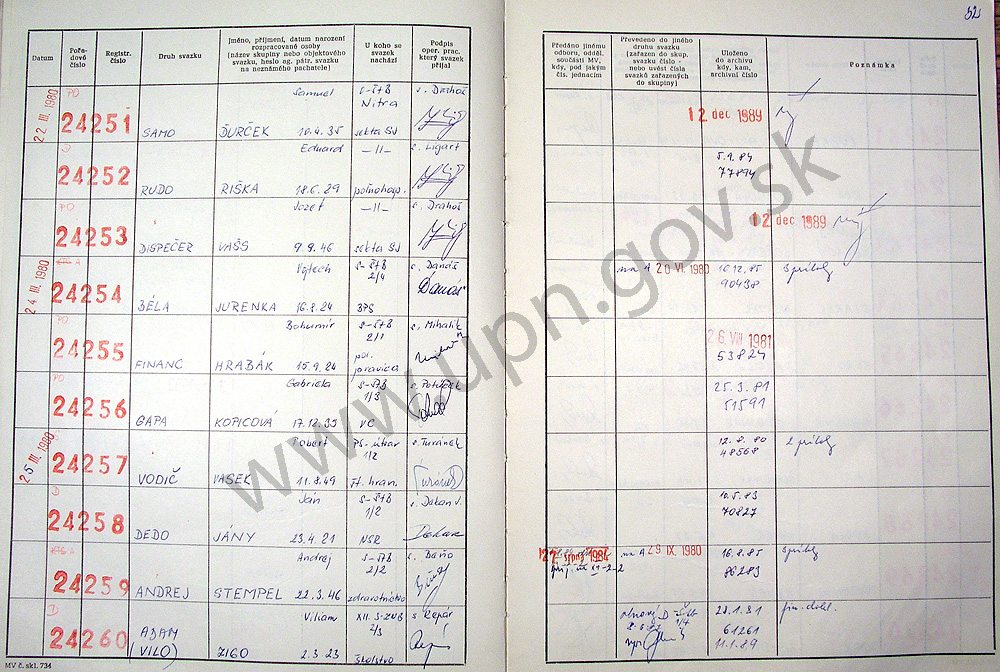 52
Datum
Pořa-
dové
číslo
Registr.
číslo
Druh svazku
Jméno, příjmení, datum narození
rozpracované osoby
(název skupiny nebo objektového
svazku, heslo ag. pátr. svazku
na neznámého pachatele)
U koho se
svazek
nachází
Podpis
oper. prac.
který svazek
přijal
Předáno jinému
odboru, odděl.
součásti MV,
kdy, pod jakým
čís. jednacím
Převedeno do jiného
druhu svazku
(zařazen do skup.
svazku číslo -
nebo uvést čísla
svazků zařazených
do skupiny)
Uloženo
do archivu
kdy, kam,
archivní číslo
Poznámka
22 III. 1980
PO
24251
SAMO
Samuel
ĎURČEK
10.4.35
S-ŠtB
Nitra
sekta SJ
s. Drahoš
12 dec 1989
D
24252
RUDO
Eduard
RIŠKA
18.6.29
—11—
s. Ligart
5.9.84
77894
PO
24253
DISPEČER
Jozef
VAŠŠ
9.9.46
—11—
sekta SJ
s. Drahoš
12 dec 1989
24 III. 1980
A
24254
BÉLA
Vojtech
JURENKA
16.8.24
S-ŠtB
2/4
s. Danáš
na A 20 VI. 1980
10.12.85
90438
PO
24255
FINANC
Bohumír
HRABÁK
15.9.24
S-ŠtB
2/1
s. Mihalik
26 VIII 1981
53824
PO
24256
GAPA
Gabriela
KOPICOVÁ
17.12.39
S-ŠtB
1/3
VC
25.3.81
51591
25 III. 1980
24257
VODIČ
Robert
VASEK
11.8.49
1/2
s. Turánek
12.8.80
48568
D
24258
DEDO
Ján
JÁNY
23.4.21
S-ŠtB
1/2
NSR
s. Dakan V.
10.5.83
70827
A
24259
ANDREJ
Andrej
STEMPEL
22.3.46
S-ŠtB
2/2
zdravotníctvo
s. Baňo
na A 29 IX. 1980
16.8.85
86283
D
24260
ADAM
(VILO)
Viliam
ZIGO
2.3.23
XII. S-ZNB
2/3
školstvo
s. Repár
61261
11.1.89
MV č. skl. 734
www.upn.gov.sk